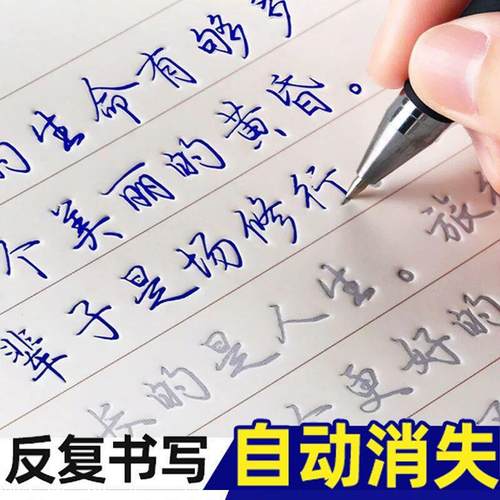 的生命有够多
个美丽的黄昏。
辈子是场修行
长的是人生。旅行
更好的
反复书写
自动消失